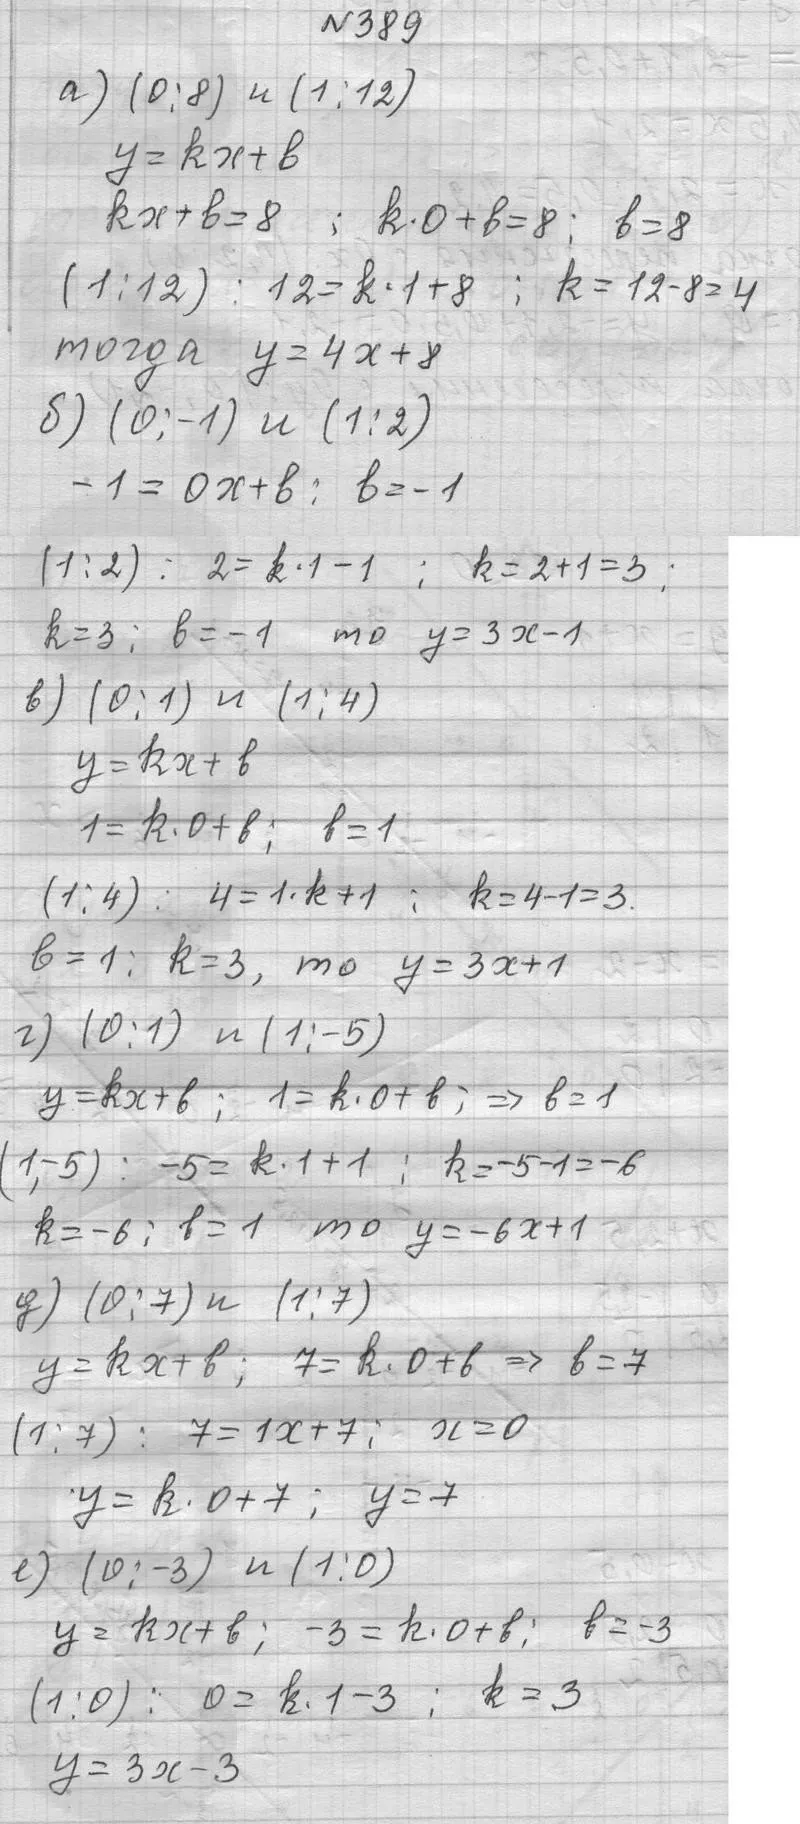 №389
а) (0;8) и (1;12)
y=kx+b
kx+b=8 ; k·0+b=8; b=8
(1;12) : 12=k·1+8 ; k=12-8=4
тогда y=4x+8
б) (0;-1) и (1;2)
-1=0x+b; b=-1
(1;2) : 2=k·1-1 ; k=2+1=3;
k=3; b=-1 то y=3x-1
в) (0;1) и (1;4)
y=kx+b
1=k·0+b; b=1
(1;4) : 4=1·k+1 ; k=4-1=3.
b=1; k=3, то y=3x+1
г) (0;1) и (1;-5)
y=kx+b; 1=k·0+b; => b=1
(1;-5) : -5=k·1+1 ; k=-5-1=-6
k=-6; b=1 то y=-6x+1
д) (0;7) и (1;7)
y=kx+b; 7=k·0+b => b=7
(1;7) : 7=1x+7; x=0
y=k·0+7; y=7
е) (0;-3) и (1;0)
y=kx+b; -3=k·0+b; b=-3
(1;0) : 0=k·1-3 ; k=3
y=3x-3